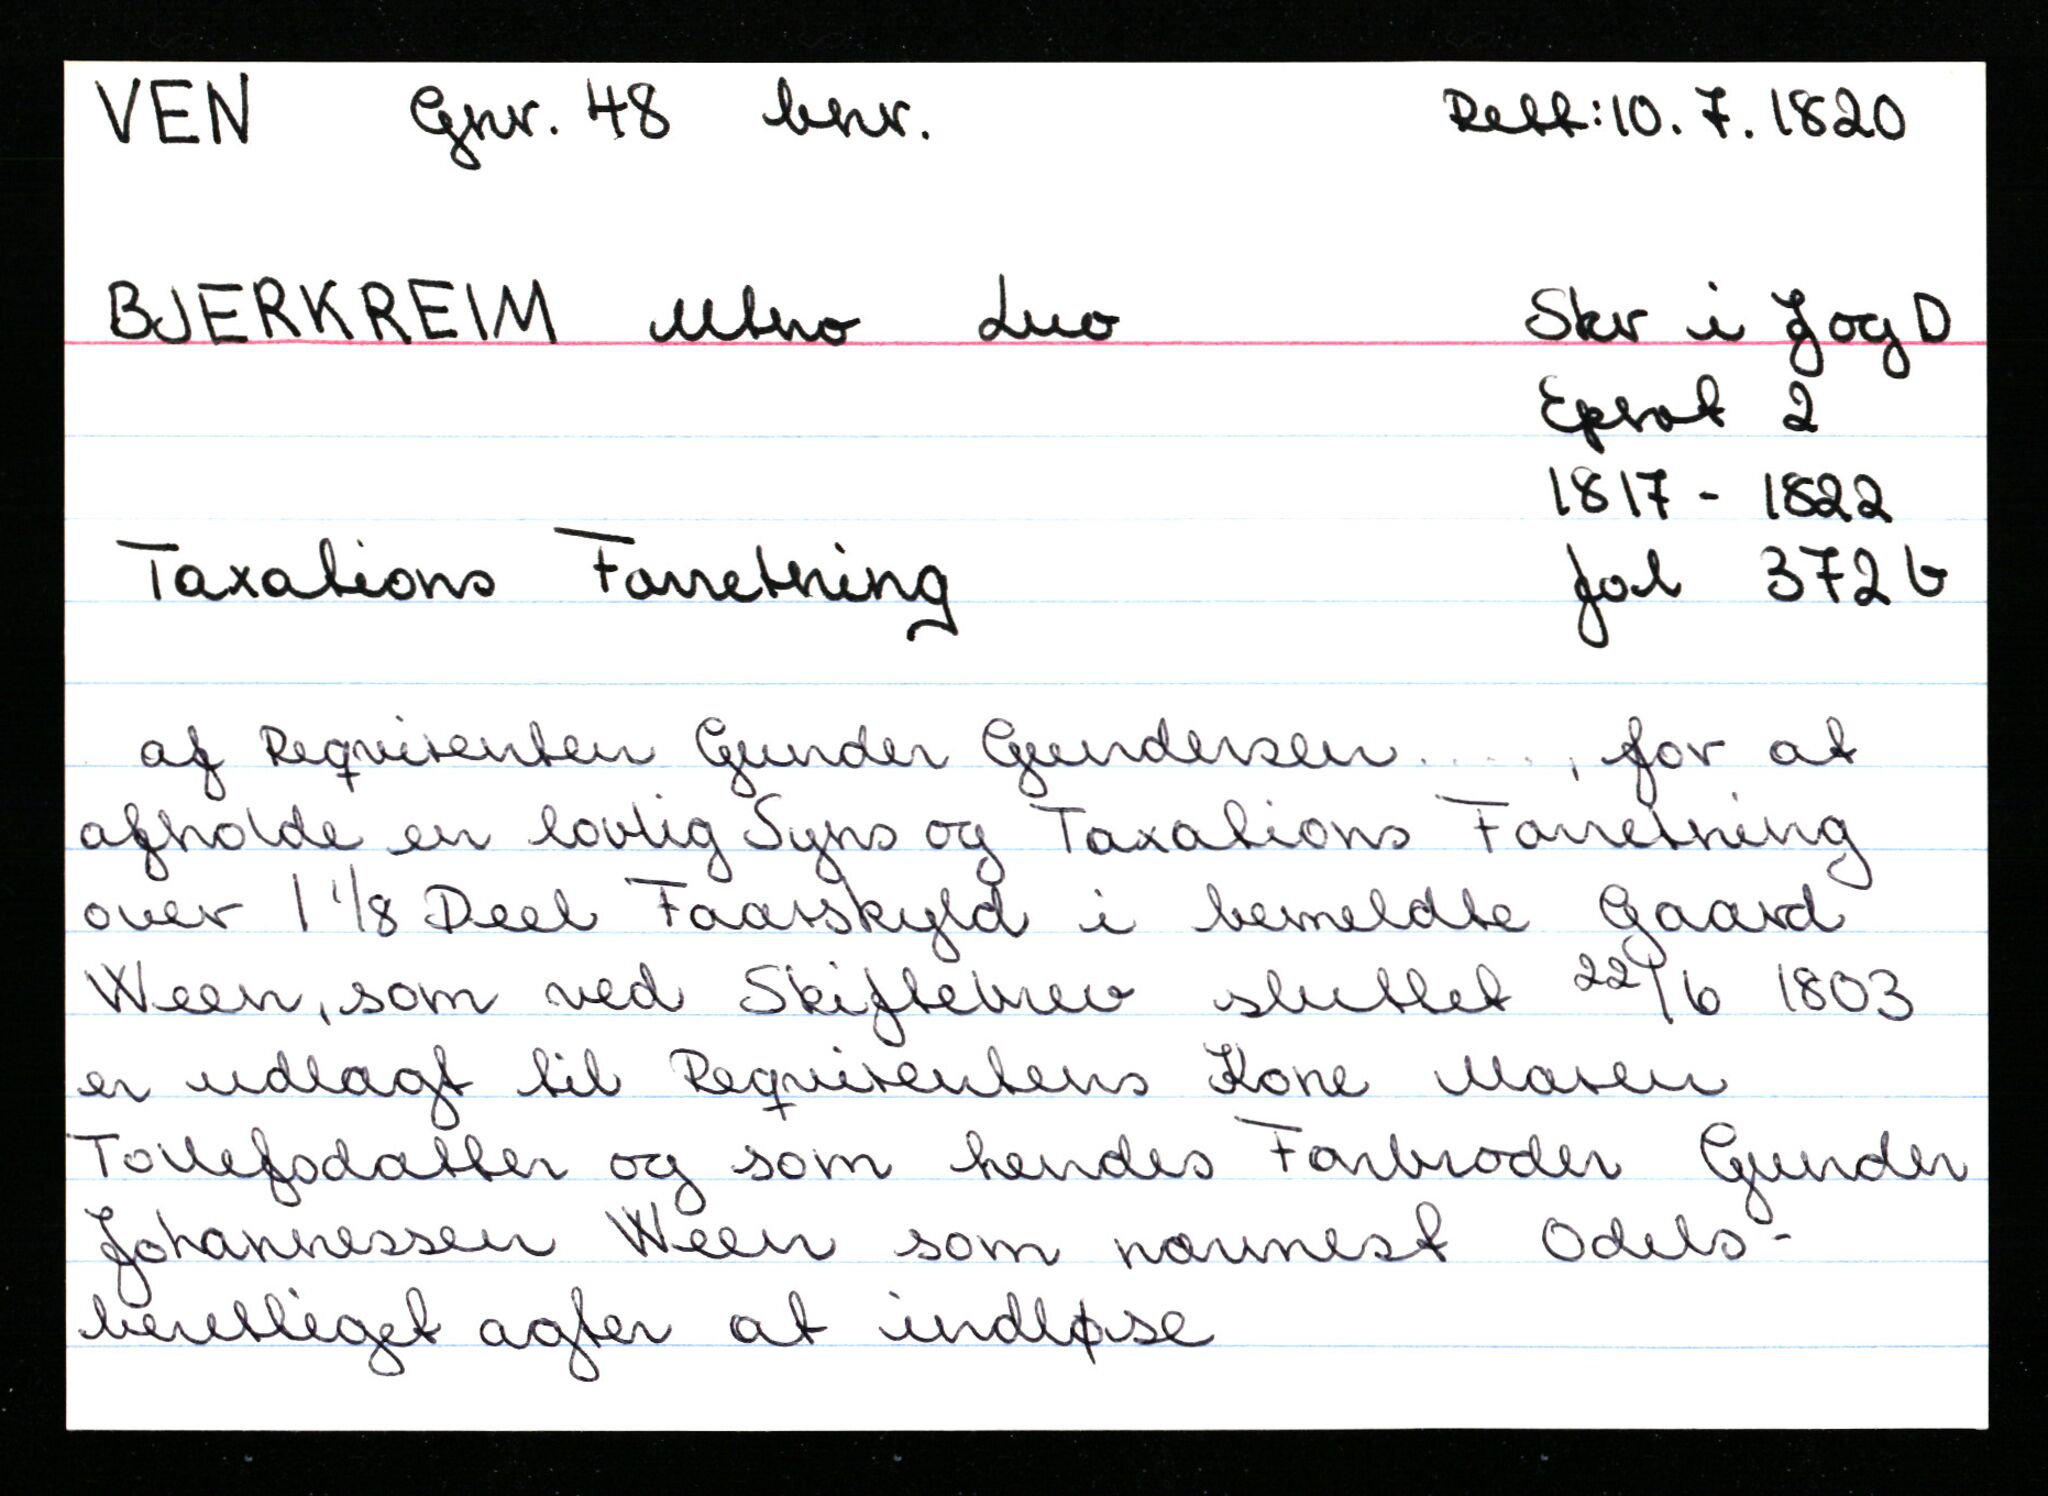 VEN Gnr. 48 bnr. Rett: 10. 7. 1820
BJERKREIM Mtno Lno Skr i J og D
Eprot 2
1817 - 1822
Taxations Forretning fol 372 b
af Requirenten Gunder Gundersen ....., for at
afholde en lovlig Syns og Taxations Forretning
over 1 1/8 Deel Faarskyld i bemeldte Gaard
Ween, som ved Skiftebrev sluttet 22/6 1803
er udlagt til Requirentens Kone Maren
Tollefsdatter og som hendes Farbroder Gunder
Johannessen Ween som nærmest Odels-
berettiget agter at indløse